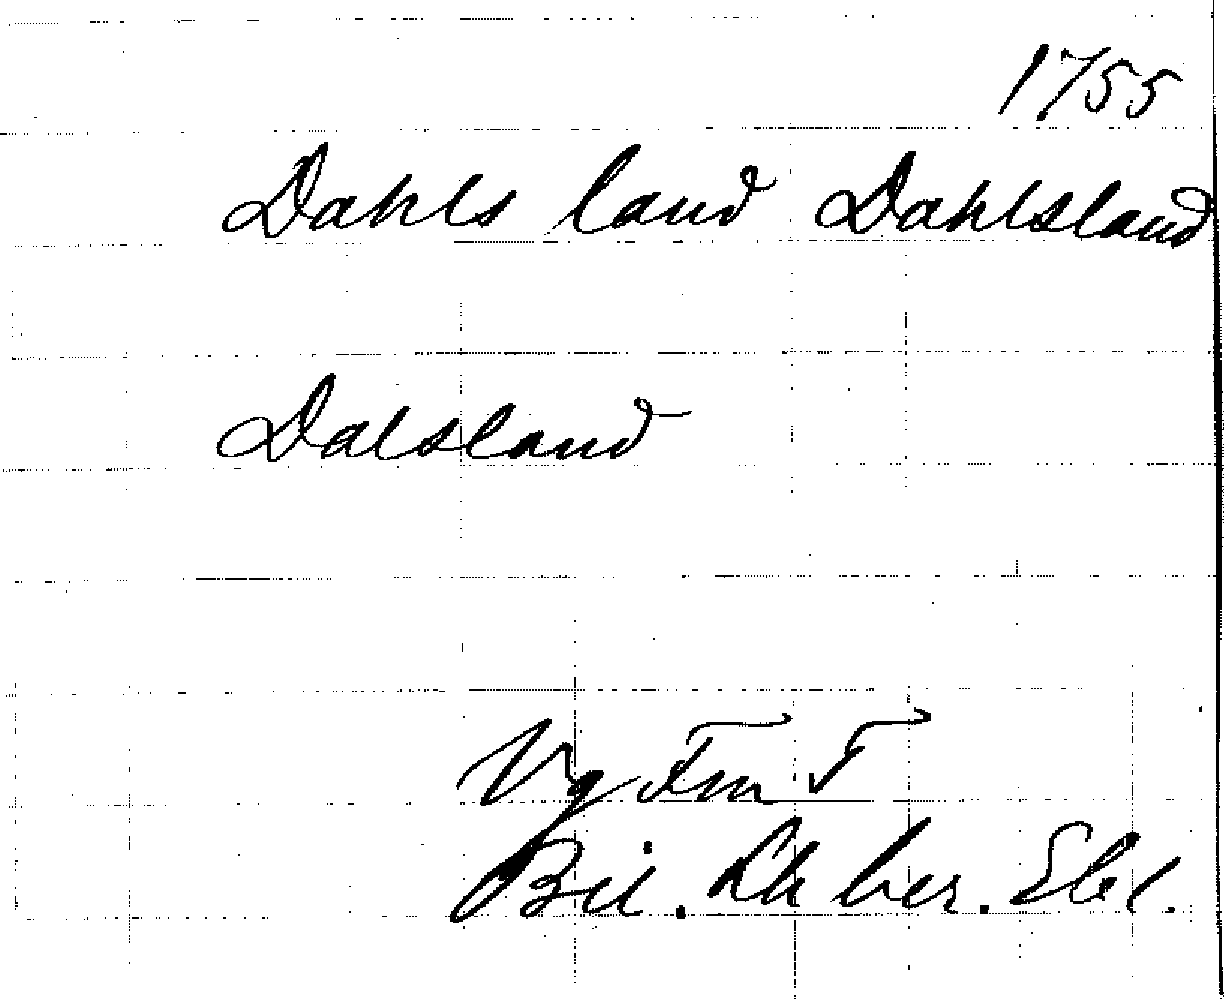 1755
Dahls land Dahlsland
Dalsland
Vg Fm T
Bil. Lh ber.